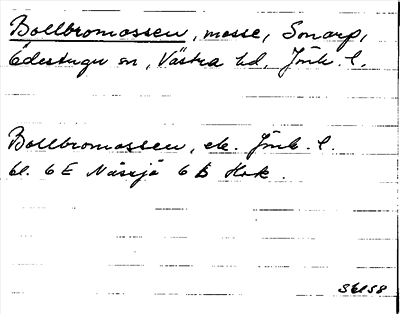 Bollbromossen, mosse, Sonarp,
Ödestugu sn, Västra hd, Jönk. l.
Bollbromossen, ek. Jönk. l.
bl. 6 E Nässjö 6 B Hok.